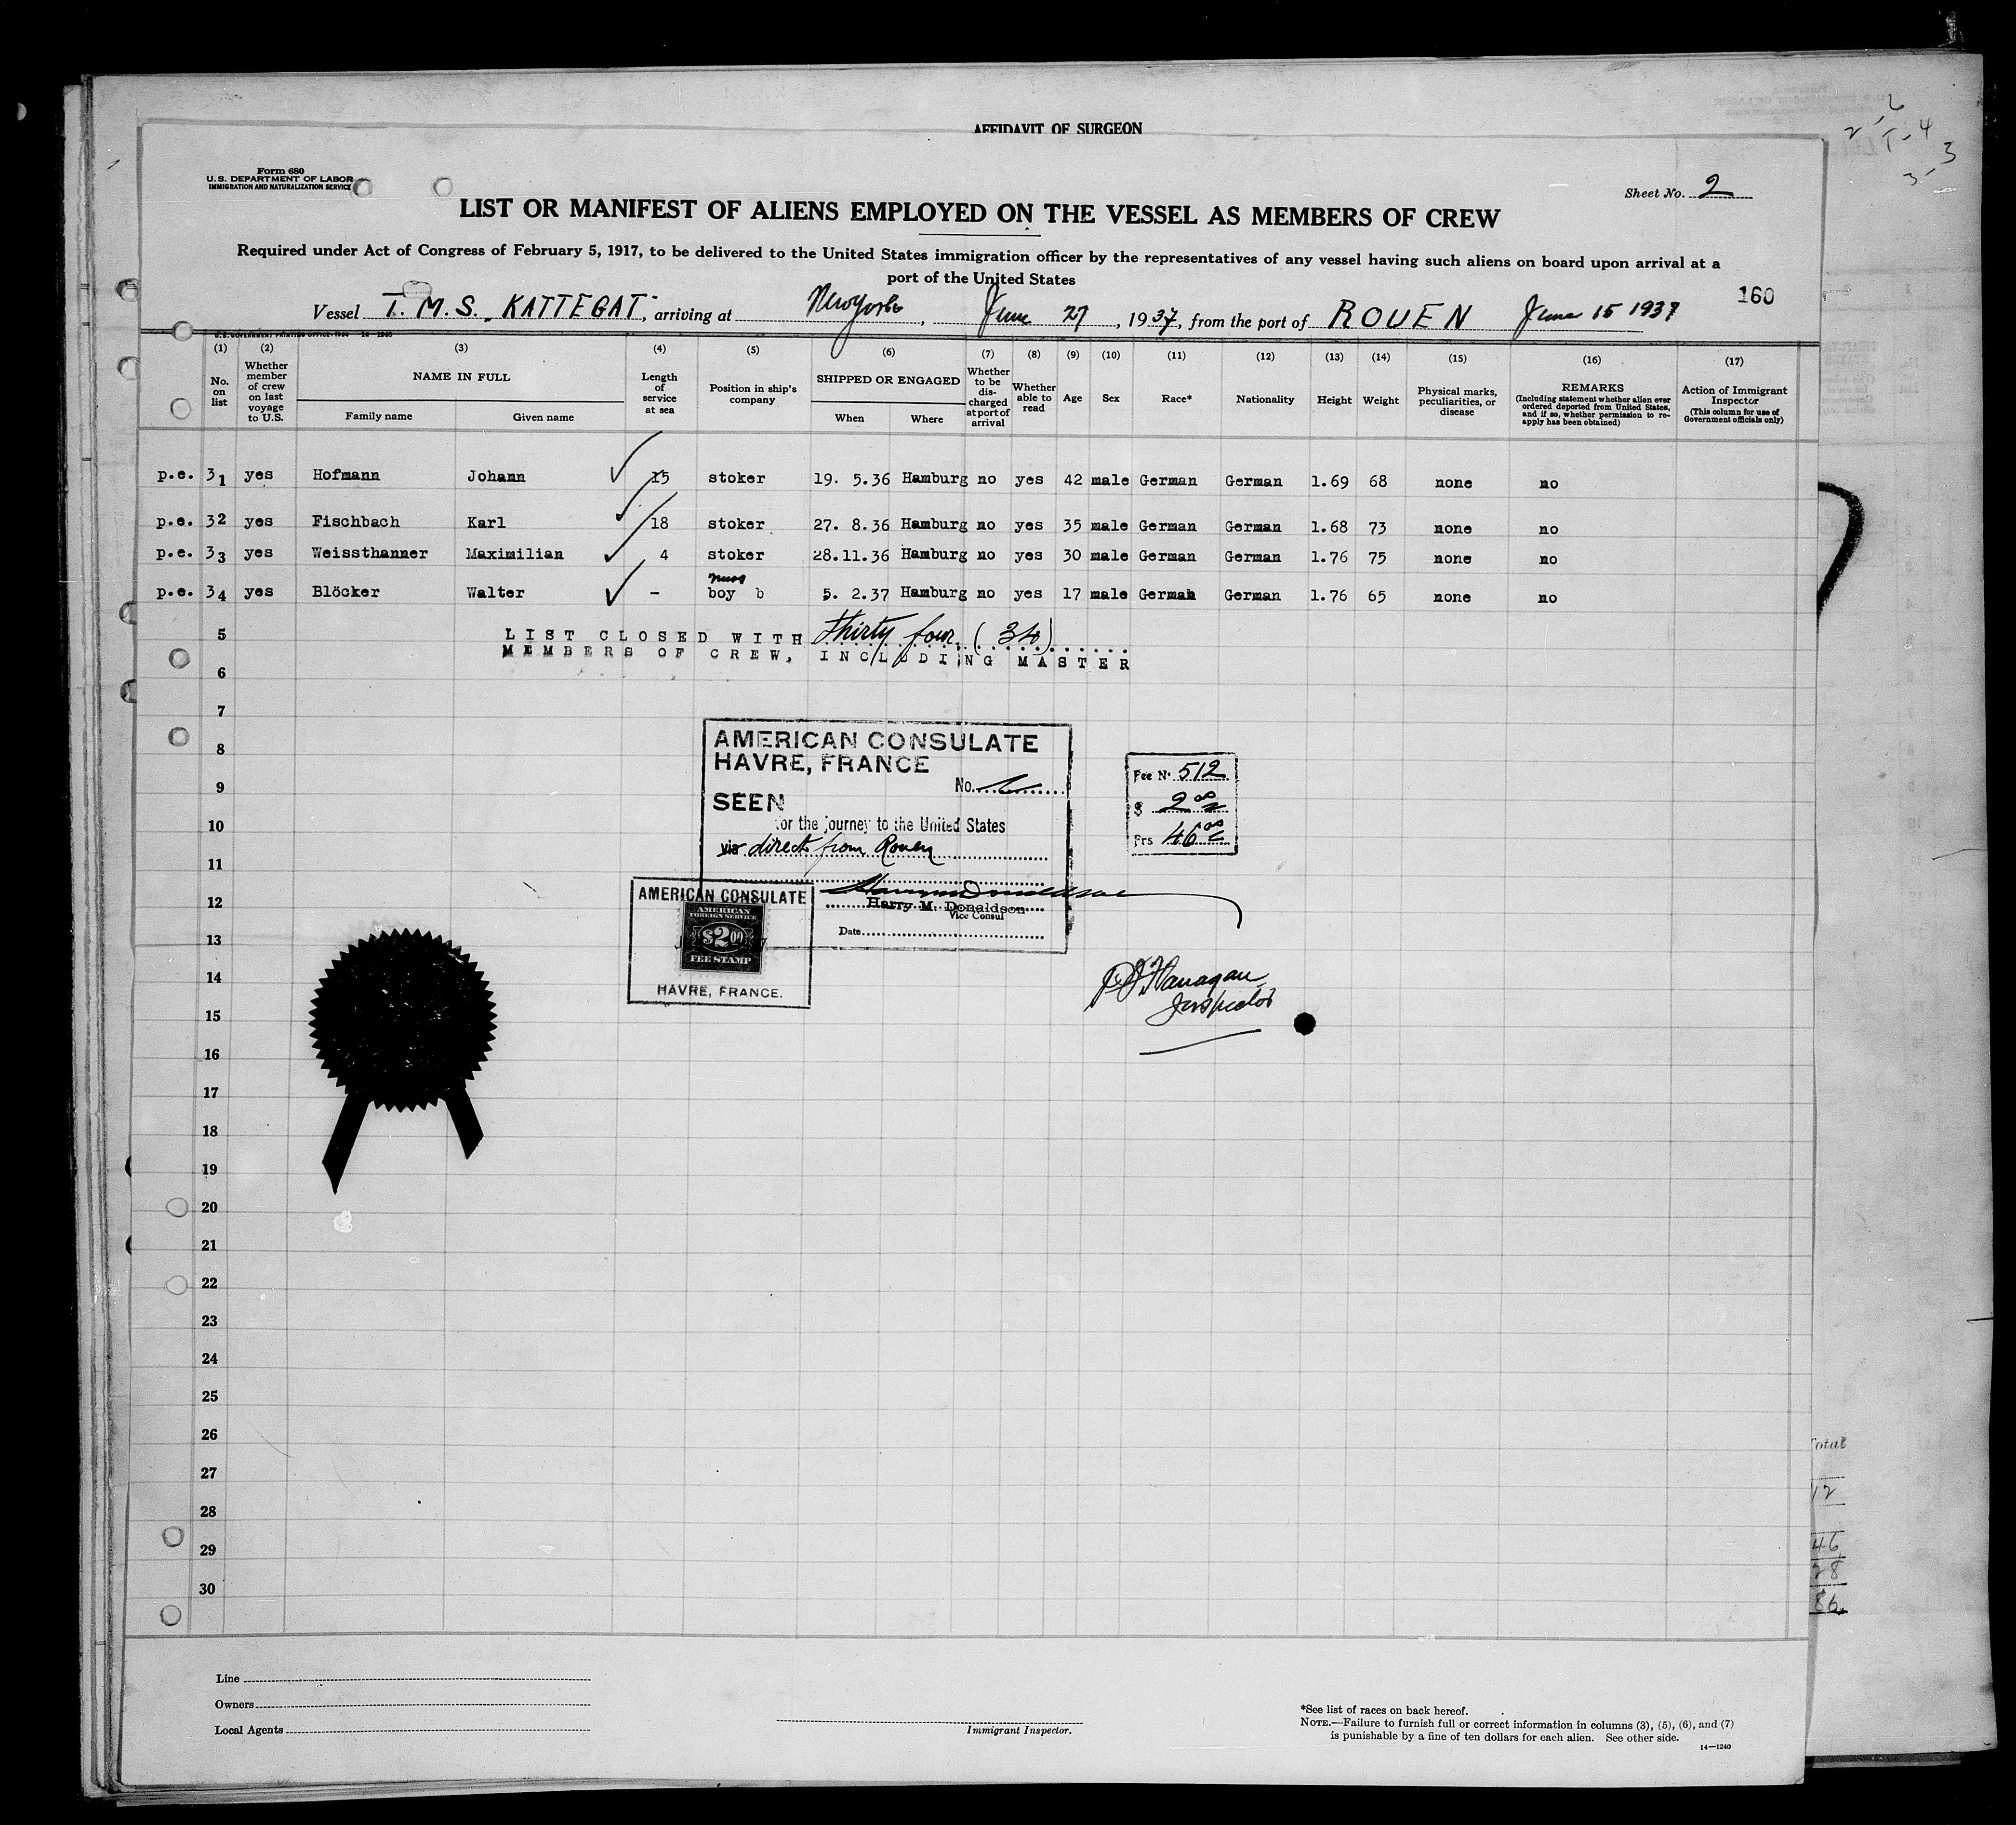 AFFIDAVIT OF SURGEON
Form 680
U.S. DEPARTMENT OF LABOR
IMMIGRATION AND NATURALIZATION SERVICE
Sheet No. 2
LIST OR MANIFEST OF ALIENS EMPLOYED ON THE VESSEL AS MEMBERS OF CREW
Required under Act of Congress of February 5, 1917, to be delivered to the United States immigration officer by the representatives of any vessel having such aliens on board upon arrival at a
port of the United States
160
Vessel T.M.S. KATTEGAT, arriving at New York, June 27, 1937, from the port of ROUEN June 15 1937
(1) (2) (3) (4) (5) (6) (7) (8) (9) (10) (11) (12) (13) (14) (15) (16) (17)
No. on list
Whether member of crew on last voyage to U.S.
NAME IN FULL
Family name Given name
Length of service at sea
Position in ship's company
SHIPPED OR ENGAGED
When Where
Whether to be discharged at port of arrival
Whether able to read
Age
Sex
Race*
Nationality
Height
Weight
Physical marks, peculiarities, or disease
REMARKS
(Including statement whether alien ever ordered deported from United States, and if so, whether permission to reapply has been obtained)
Action of Immigrant Inspector
(This column for use of Government officials only)
p.e. 31 yes Hofmann Johann 15 stoker 19. 5.36 Hamburg no yes 42 male German German 1.69 68 none no
p.e. 32 yes Fischbach Karl 18 stoker 27. 8.36 Hamburg no yes 35 male German German 1.68 73 none no
p.e. 33 yes Weissthanner Maximilian 4 stoker 28.11.36 Hamburg no yes 30 male German German 1.76 75 none no
p.e. 34 yes Blöcker Walter - mess boy b 5. 2.37 Hamburg no yes 17 male German German 1.76 65 none no
5
LIST CLOSED WITH thirty four (34)
MEMBERS OF CREW, INCLUDING MASTER
6
7
8
9
10
11
12
13
14
15
16
17
18
19
20
21
22
23
24
25
26
27
28
29
30
AMERICAN CONSULATE
HAVRE, FRANCE
No.
SEEN
for the journey to the United States
via direct from Rouen
Harry M. Donaldson
Vice Consul
Date
Fee No. 512
$ 2.00
Frs 46.00
AMERICAN CONSULATE
AMERICAN
FOREIGN SERVICE
$2.00
FEE STAMP
HAVRE, FRANCE.
Flanagan
Inspector
Total
12
46
28
86
Line
Owners
Local Agents
Immigrant Inspector.
*See list of races on back hereof.
NOTE.—Failure to furnish full or correct information in columns (3), (5), (6), and (7)
is punishable by a fine of ten dollars for each alien. See other side.
14—1240